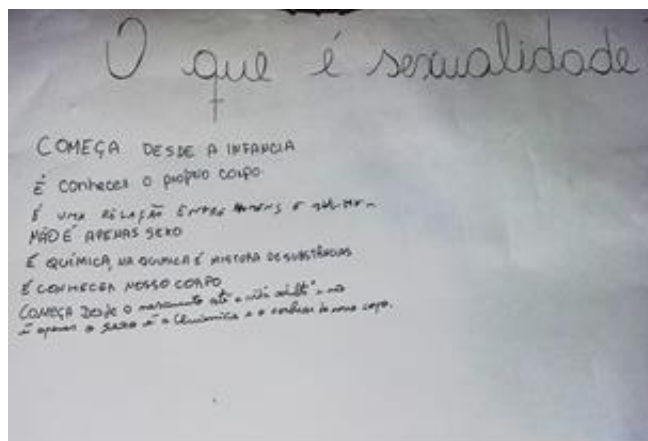 O que é sexualidade
COMEÇA DESDE A INFANCIA
É conhecer o próprio corpo
É UMA RELAÇÃO ENTRE HOMENS E
NÃO É APENAS SEXO
É QUÍMICA, NA QUÍMICA É MISTURA DE SUBSTÂNCIAS
É CONHECER NOSSO CORPO
COMEÇA DESDE O nascimento até a vida adulta, não
é apenas o sexo é a Química e o conhecer do nosso corpo.